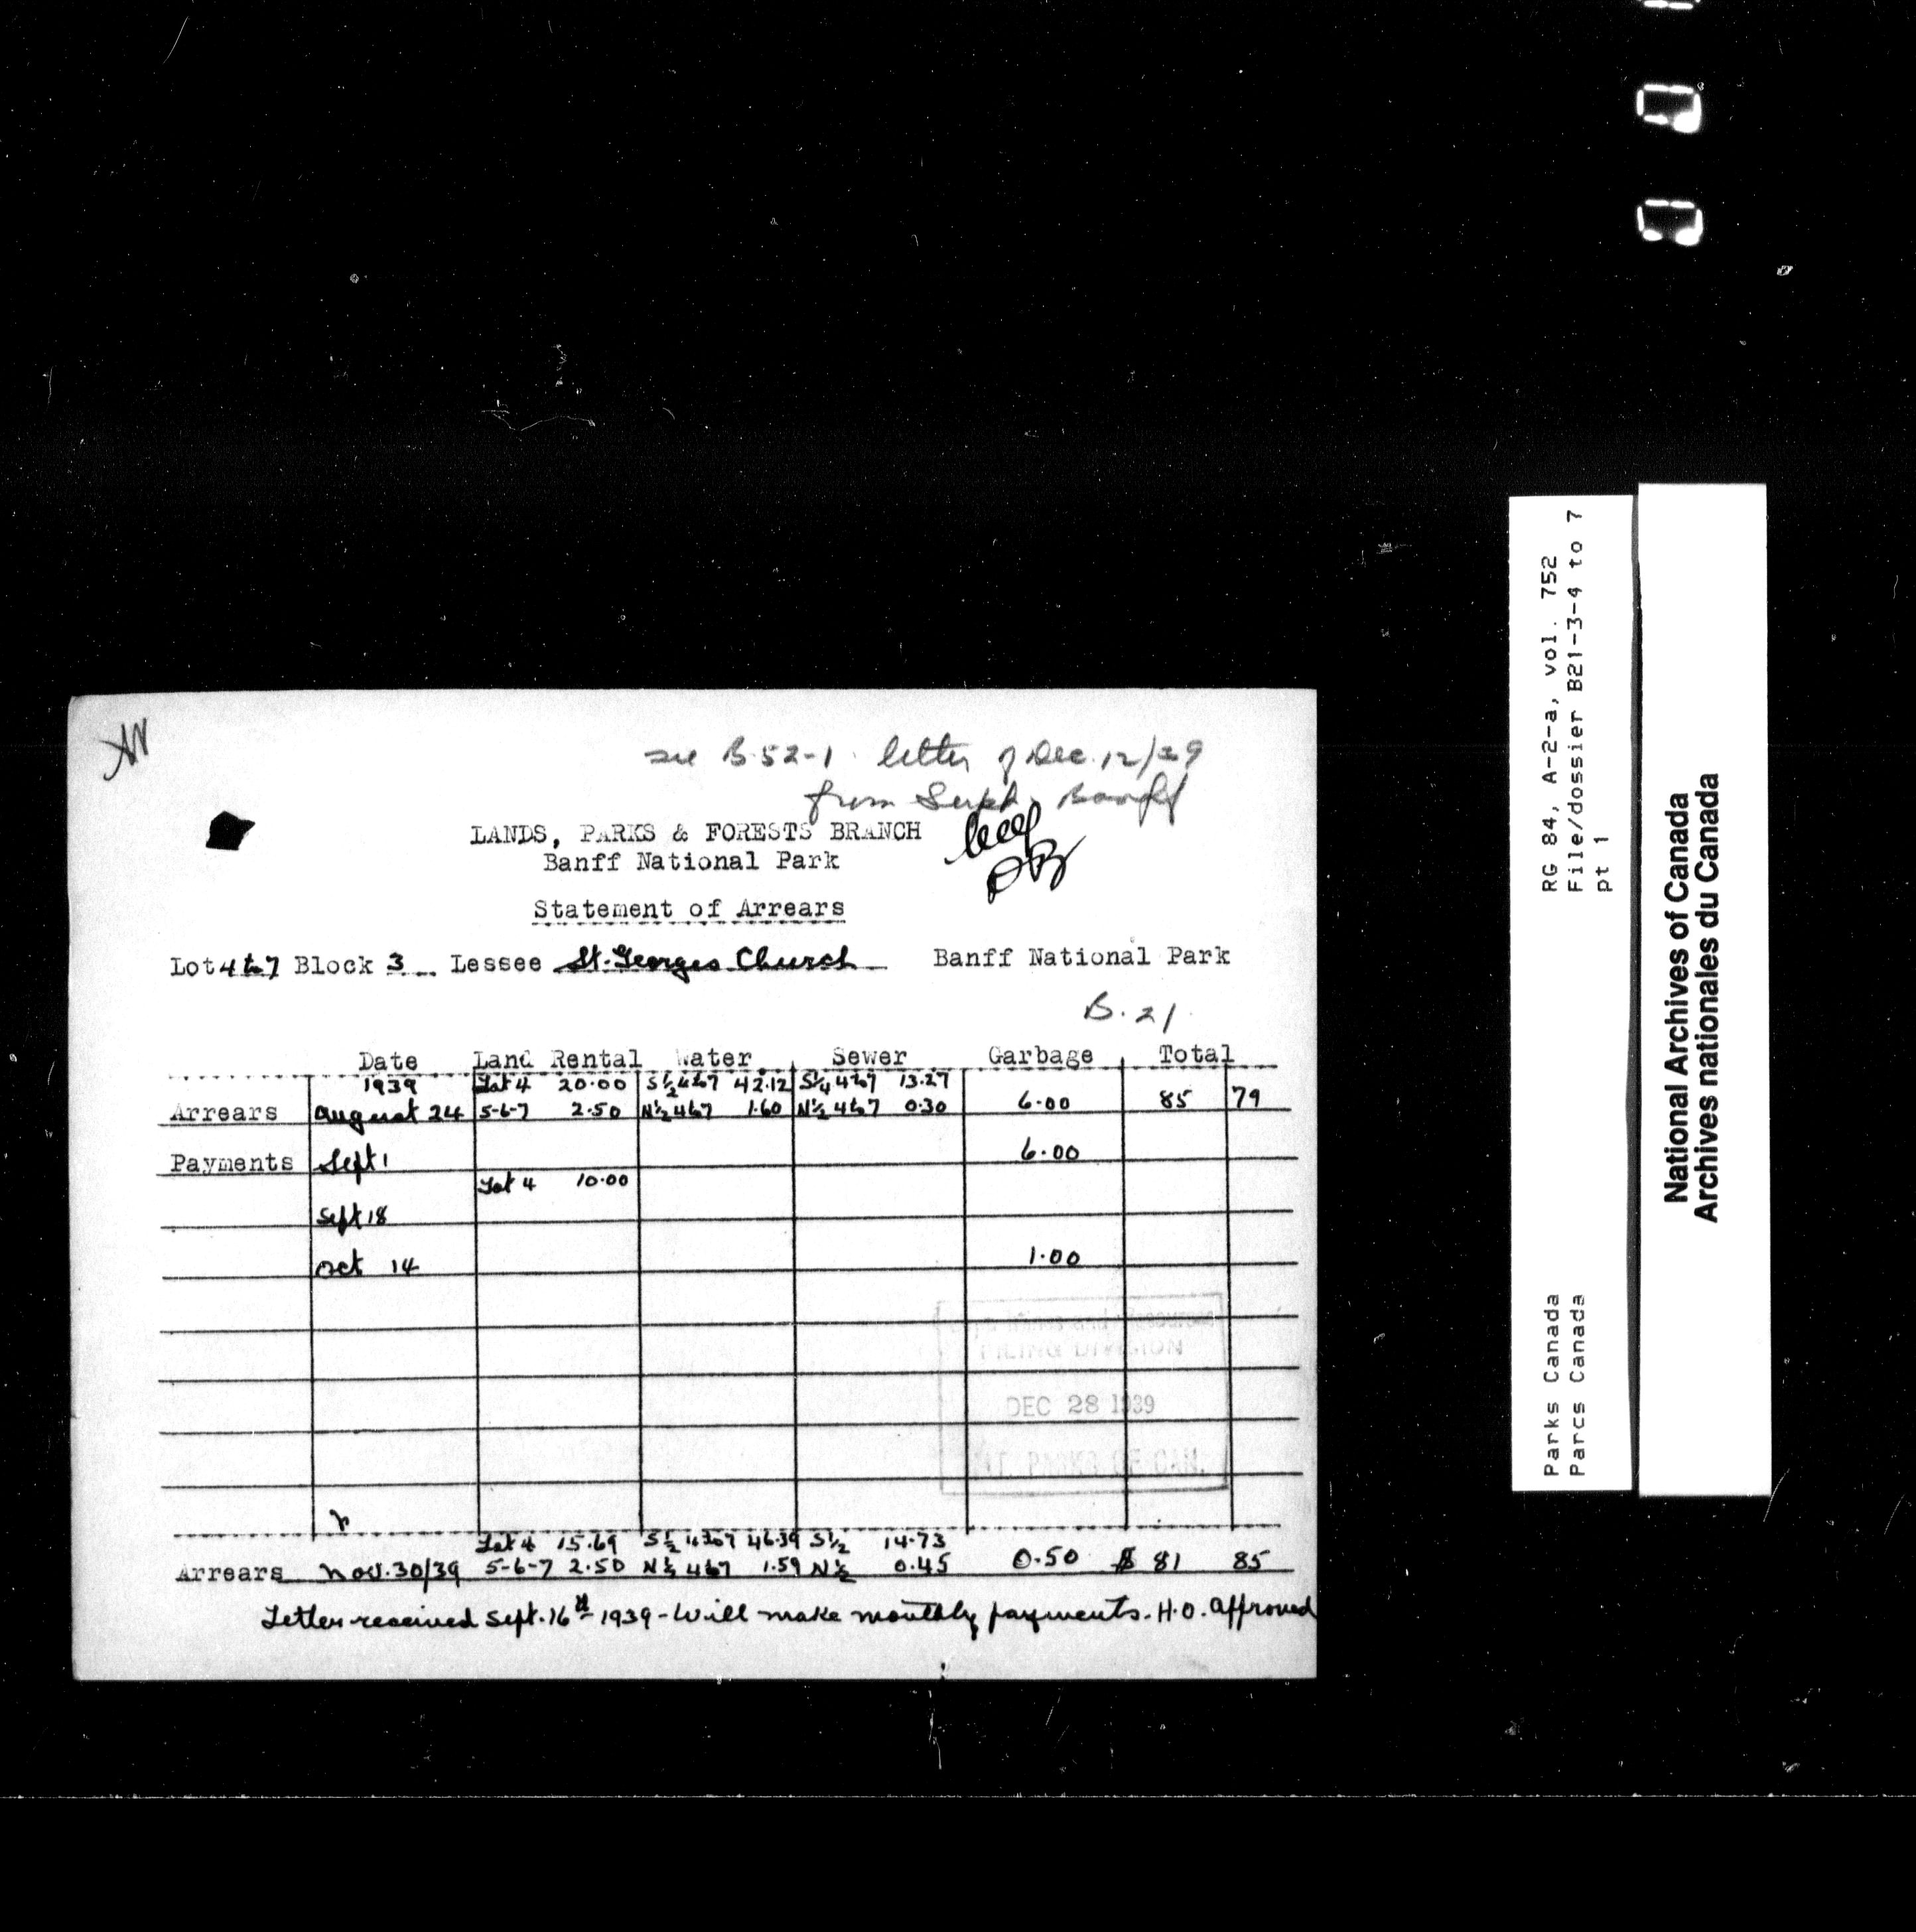 see B.52-1 letter of Dec. 12/39
from Supt. Banff
LANDS, PARKS & FORESTS BRANCH
Banff National Park
Statement of Arrears
Lot 4 to 7 Block 3 Lessee St. Georges Church Banff National Park
B. 21
Date Land Rental Water Sewer Garbage Total
1939 Lot 4 20.00 S½ 4 to 7 42.12 4 to 7 13.27
Arrears August 24 5-6-7 2.50 N½ 4 to 7 1.60 N½ 4 to 7 0.30 6.00 85 79
Payments Sept 1 6.00
Lot 4 10.00
Sept 18
Oct 14 1.00
FILING DIVISION
DEC 28 1939
NAT. PARKS OF CAN.
Lot 4 15.69 S½ 4 to 7 46.39 S½ 14.73
Arrears Nov. 30/39 5-6-7 2.50 N½ 4 to 7 1.59 N½ 0.45 0.50 $ 81 85
Letter received Sept. 16th 1939 - Will make monthly payments. H.O. approved
RG 84, A-2-a, vol. 752
File/dossier B21-3-4 to 7
pt 1
Parks Canada
Parcs Canada
National Archives of Canada
Archives nationales du Canada